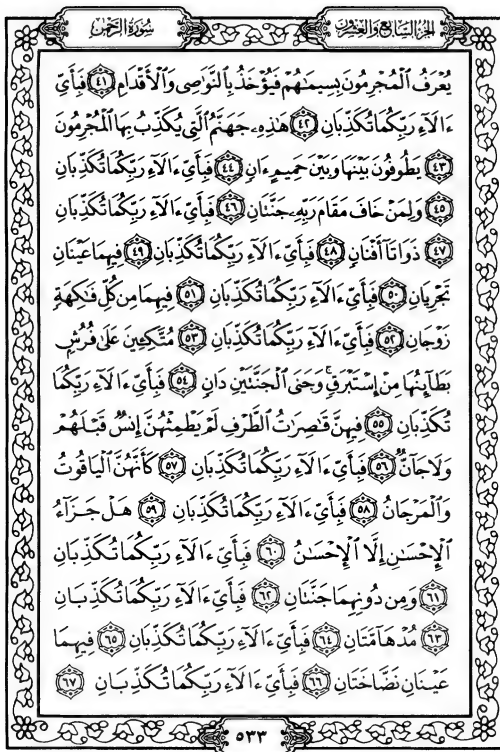 سُورَةُ الرَّحْمَٰن
الجُزْءُ السَّابِعُ وَالْعِشْرُونَ
يُعْرَفُ ٱلْمُجْرِمُونَ بِسِيمَٰهُمْ فَيُؤْخَذُ بِٱلنَّوَٰصِى وَٱلْأَقْدَامِ ٤١ فَبِأَىِّ
ءَالَآءِ رَبِّكُمَا تُكَذِّبَانِ ٤٢ هَٰذِهِۦ جَهَنَّمُ ٱلَّتِى يُكَذِّبُ بِهَا ٱلْمُجْرِمُونَ
٤٣ يَطُوفُونَ بَيْنَهَا وَبَيْنَ حَمِيمٍ ءَانٍ ٤٤ فَبِأَىِّ ءَالَآءِ رَبِّكُمَا تُكَذِّبَانِ
٤٥ وَلِمَنْ خَافَ مَقَامَ رَبِّهِۦ جَنَّتَانِ ٤٦ فَبِأَىِّ ءَالَآءِ رَبِّكُمَا تُكَذِّبَانِ
٤٧ ذَوَاتَآ أَفْنَانٍ ٤٨ فَبِأَىِّ ءَالَآءِ رَبِّكُمَا تُكَذِّبَانِ ٤٩ فِيهِمَا عَيْنَانِ
تَجْرِيَانِ ٥٠ فَبِأَىِّ ءَالَآءِ رَبِّكُمَا تُكَذِّبَانِ ٥١ فِيهِمَا مِن كُلِّ فَٰكِهَةٍ
زَوْجَانِ ٥٢ فَبِأَىِّ ءَالَآءِ رَبِّكُمَا تُكَذِّبَانِ ٥٣ مُتَّكِـِٔينَ عَلَىٰ فُرُشٍۭ
بَطَآئِنُهَا مِنْ إِسْتَبْرَقٍ ۚ وَجَنَى ٱلْجَنَّتَيْنِ دَانٍ ٥٤ فَبِأَىِّ ءَالَآءِ رَبِّكُمَا
تُكَذِّبَانِ ٥٥ فِيهِنَّ قَٰصِرَٰتُ ٱلطَّرْفِ لَمْ يَطْمِثْهُنَّ إِنسٌ قَبْلَهُمْ
وَلَا جَآنٌّ ٥٦ فَبِأَىِّ ءَالَآءِ رَبِّكُمَا تُكَذِّبَانِ ٥٧ كَأَنَّهُنَّ ٱلْيَاقُوتُ
وَٱلْمَرْجَانُ ٥٨ فَبِأَىِّ ءَالَآءِ رَبِّكُمَا تُكَذِّبَانِ ٥٩ هَلْ جَزَآءُ
ٱلْإِحْسَٰنِ إِلَّا ٱلْإِحْسَٰنُ ٦٠ فَبِأَىِّ ءَالَآءِ رَبِّكُمَا تُكَذِّبَانِ
٦١ وَمِن دُونِهِمَا جَنَّتَانِ ٦٢ فَبِأَىِّ ءَالَآءِ رَبِّكُمَا تُكَذِّبَانِ
٦٣ مُدْهَآمَّتَانِ ٦٤ فَبِأَىِّ ءَالَآءِ رَبِّكُمَا تُكَذِّبَانِ ٦٥ فِيهِمَا
عَيْنَانِ نَضَّاخَتَانِ ٦٦ فَبِأَىِّ ءَالَآءِ رَبِّكُمَا تُكَذِّبَانِ ٦٧
٥٣٣